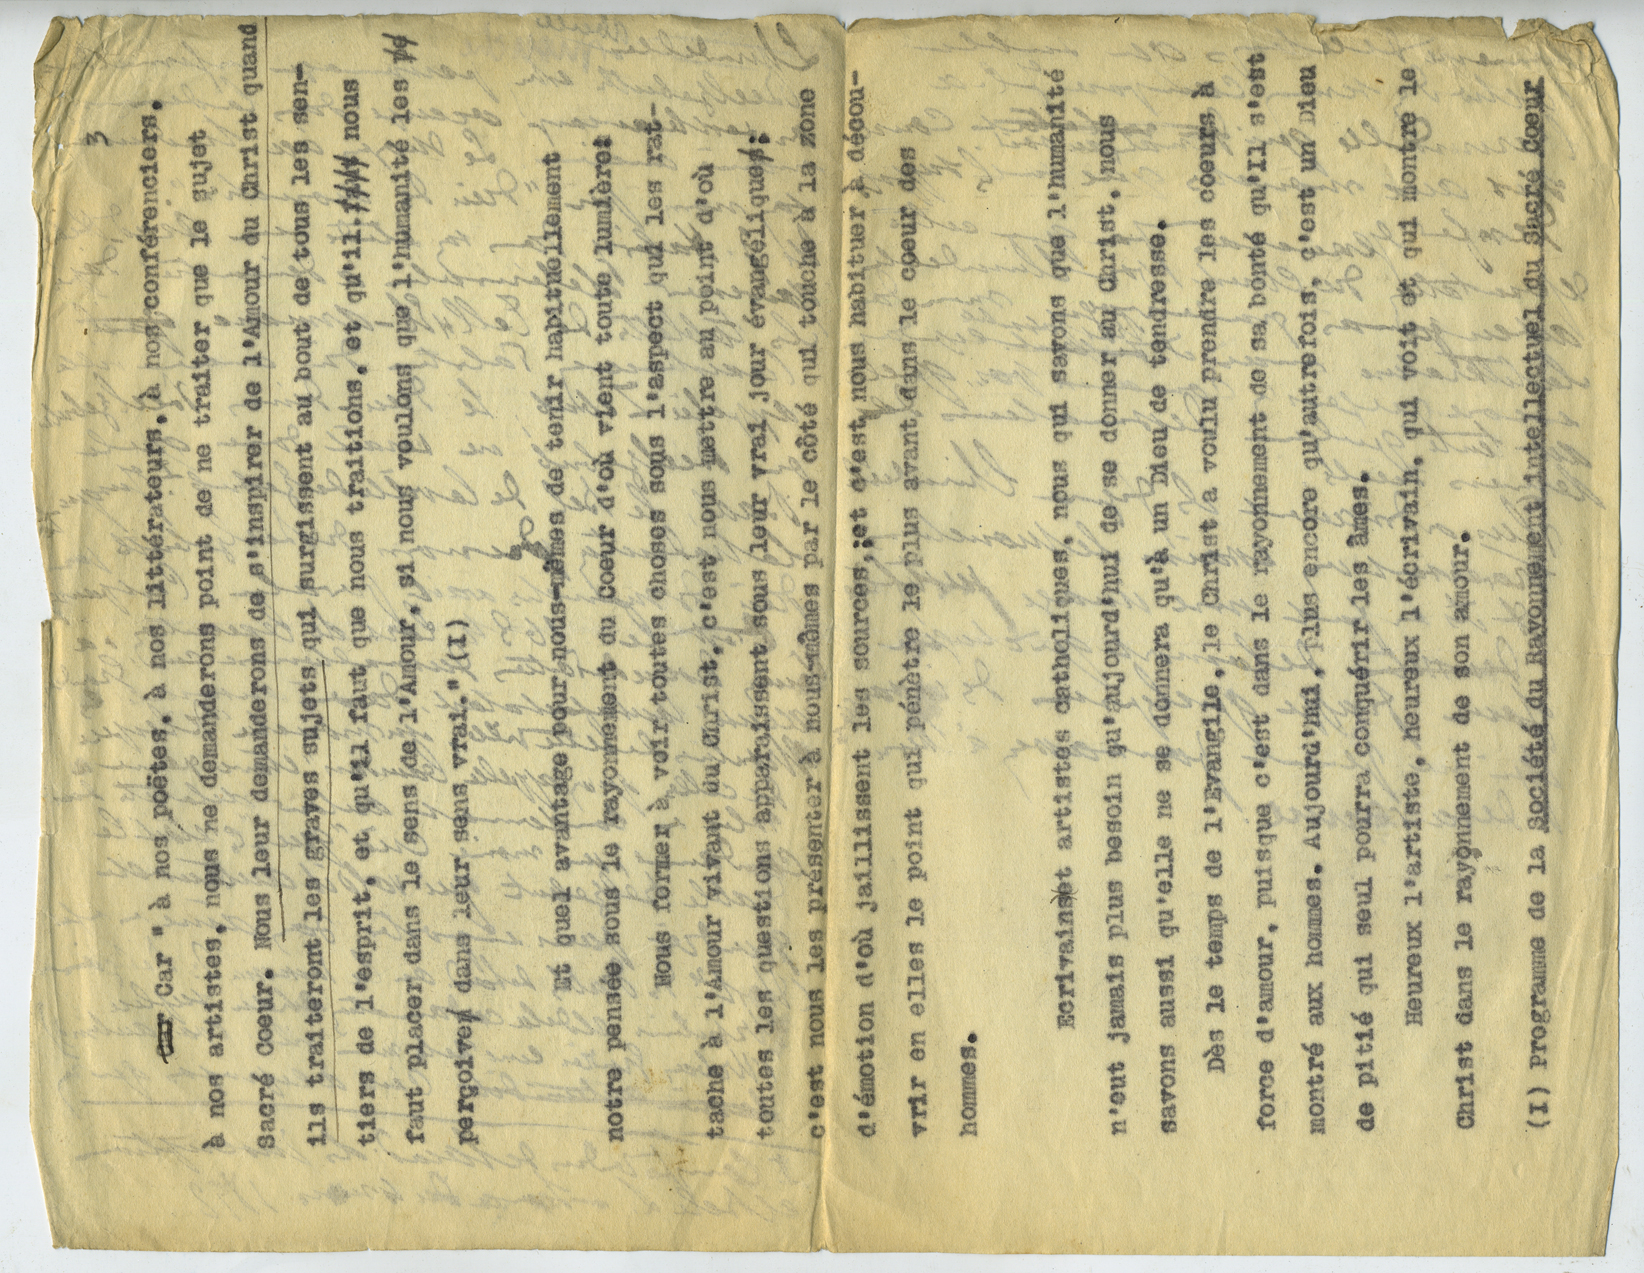 3
Car Car " à nos poëtes, à nos littérateurs, à nos conférenciers,
à nos artistes, nous ne demanderons point de ne traiter que le sujet
Sacré Coeur. Nous leur demanderons de s'inspirer de l'Amour du Christ quand
ils traiteront les graves sujets qui surgissent au bout de tous les sen-
tiers de l'esprit, et qu'il faut que nous traitions, et qu'il nous
faut placer dans le sens de l'Amour, si nous voulons que l'humanité les
perçoive dans leur sens vrai."(I)
Et quel avantage pour nous-mêmes de tenir habituellement
notre pensée sous le rayonnement du Coeur d'où vient toute lumière:
Nous former à voir toutes choses sous l'aspect qui les rat-
tache à l'Amour vivant du Christ, c'est nous mettre au point d'où
toutes les questions apparaissent sous leur vrai jour évangélique;
c'est nous les présenter à nous-mêmes par le côté qui touche à la zone
d'émotion d'où jaillissent les sources,;et c'est nous habituer à décou-
vrir en elles le point qui pénètre le plus avant dans le coeur des
hommes.
Ecrivains et artistes catholiques, nous qui savons que l'humanité
n'eut jamais plus besoin qu'aujourd'hui de se donner au Christ, nous
savons aussi qu'elle ne se donnera qu'à un Dieu de tendresse.
Dès le temps de l'Evangile, le Christ a voulu prendre les coeurs à
force d'amour, puisque c'est dans le rayonnement de sa bonté qu'Il s'est
montré aux hommes. Aujourd'hui, plus encore qu'autrefois, c'est un Dieu
de pitié qui seul pourra conquérir les âmes.
Heureux l'artiste, heureux l'écrivain, qui voit et qui montre le
Christ dans le rayonnement de son amour.
(I) Programme de la Société du Rayonnement intellectuel du Sacré Coeur